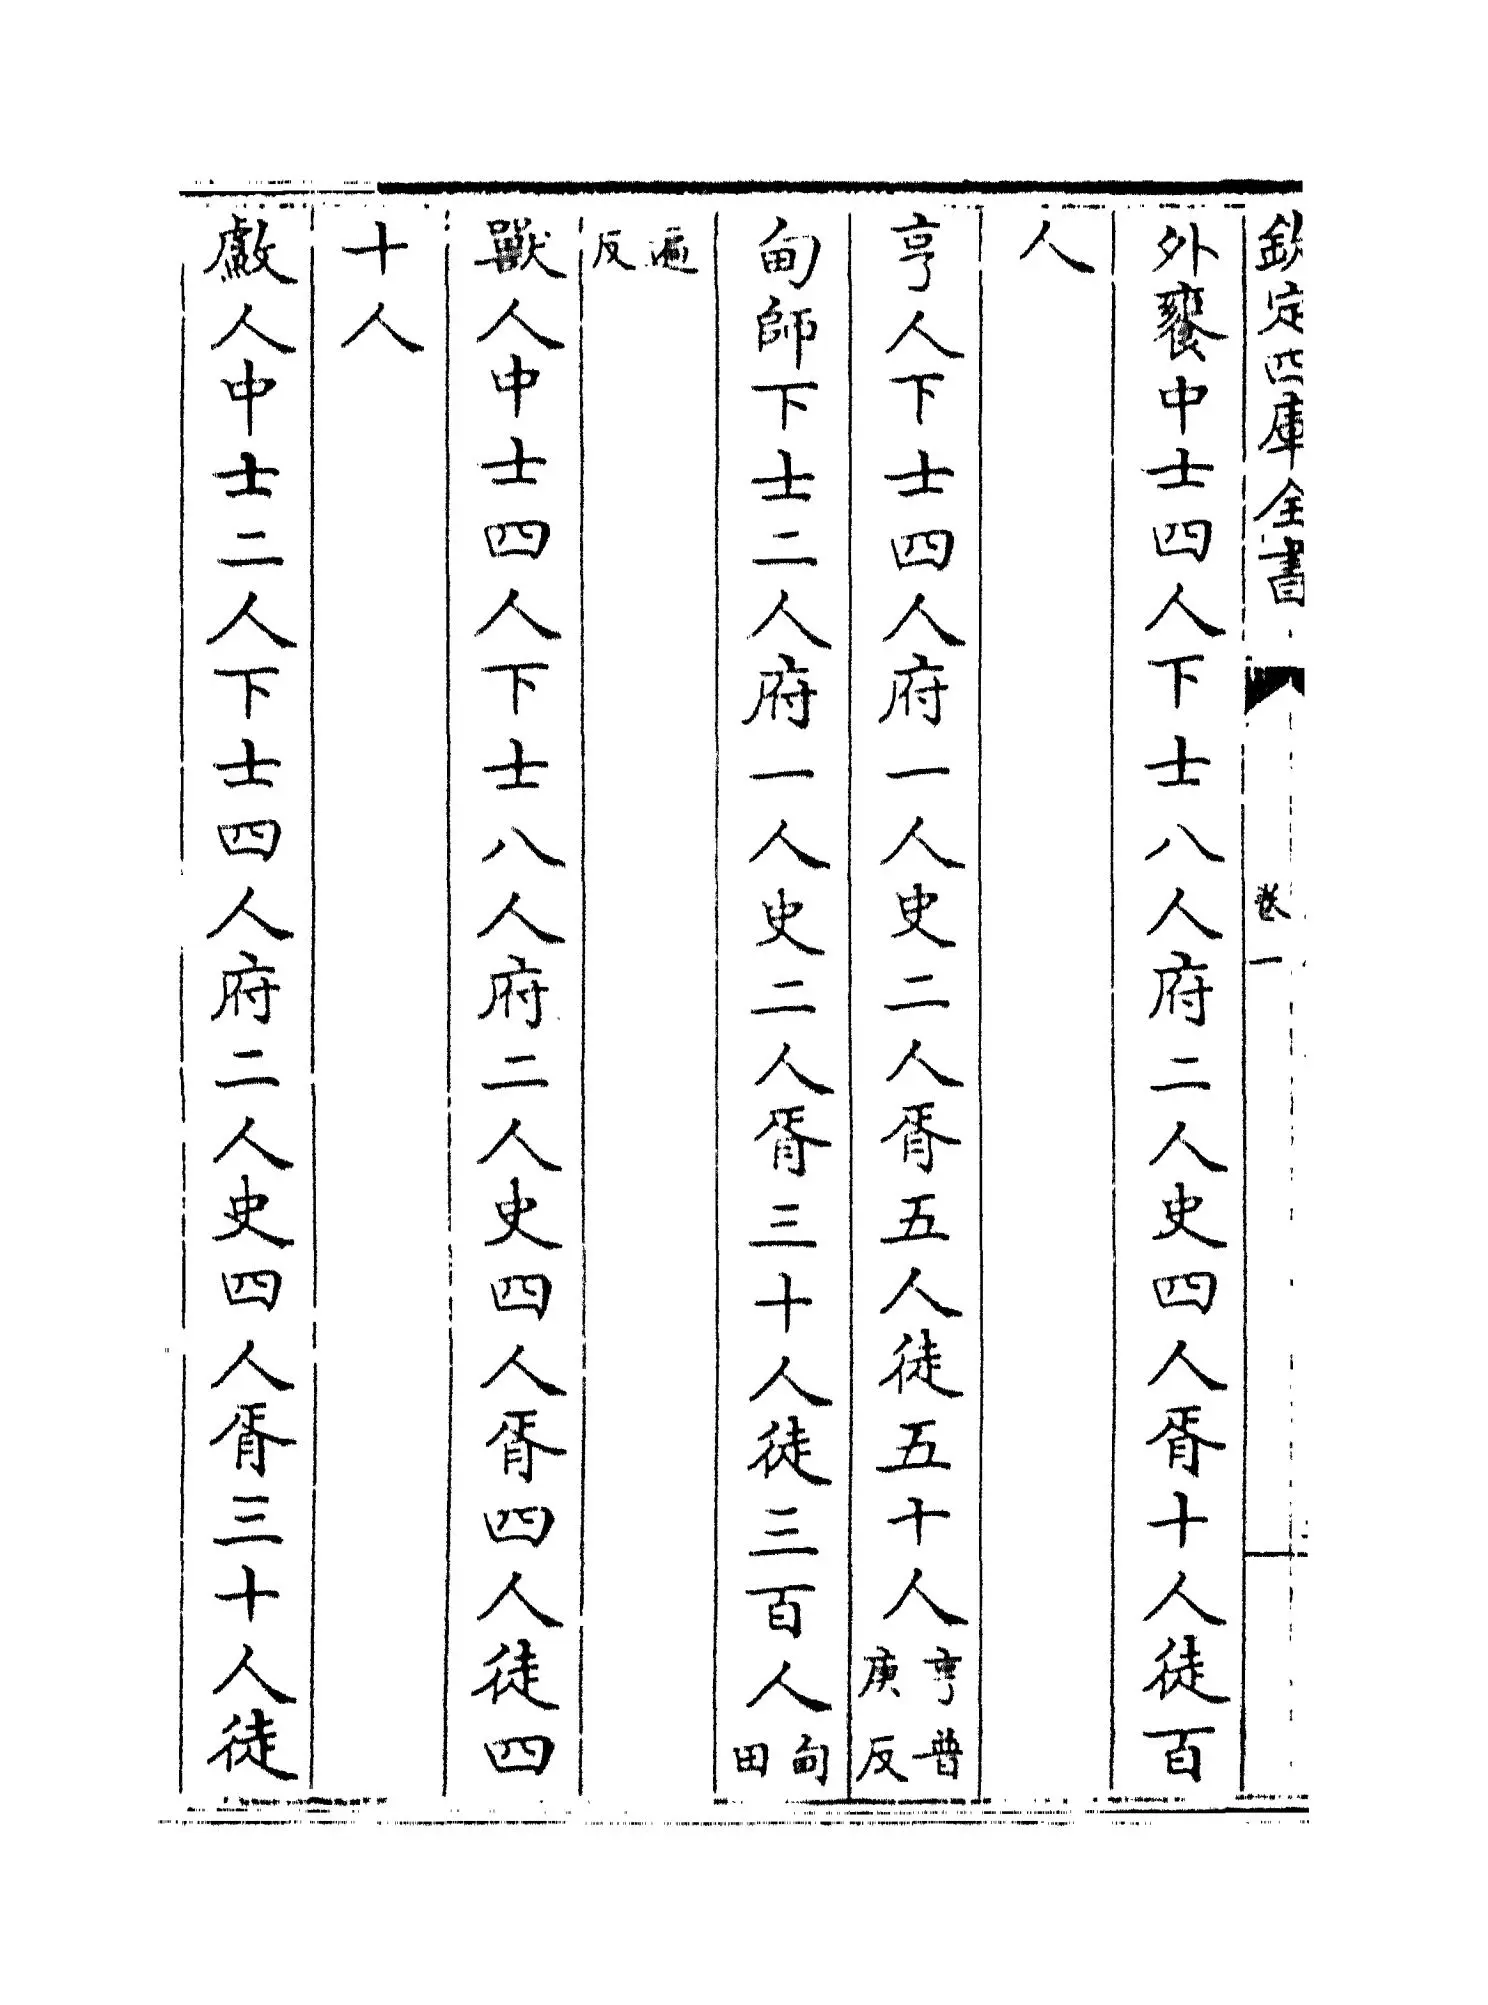 欽定四庫全書 卷一
外饔中士四人下士八人府二人史四人胥十人徒百
人
亨人下士四人府一人史二人胥五人徒五十人亨普庚反
甸師下士二人府一人史二人胥三十人徒三百人甸田
遍反
獸人中士四人下士八人府二人史四人胥四人徒四
十人
人中士二人下士四人府二人史四人胥三十人徒